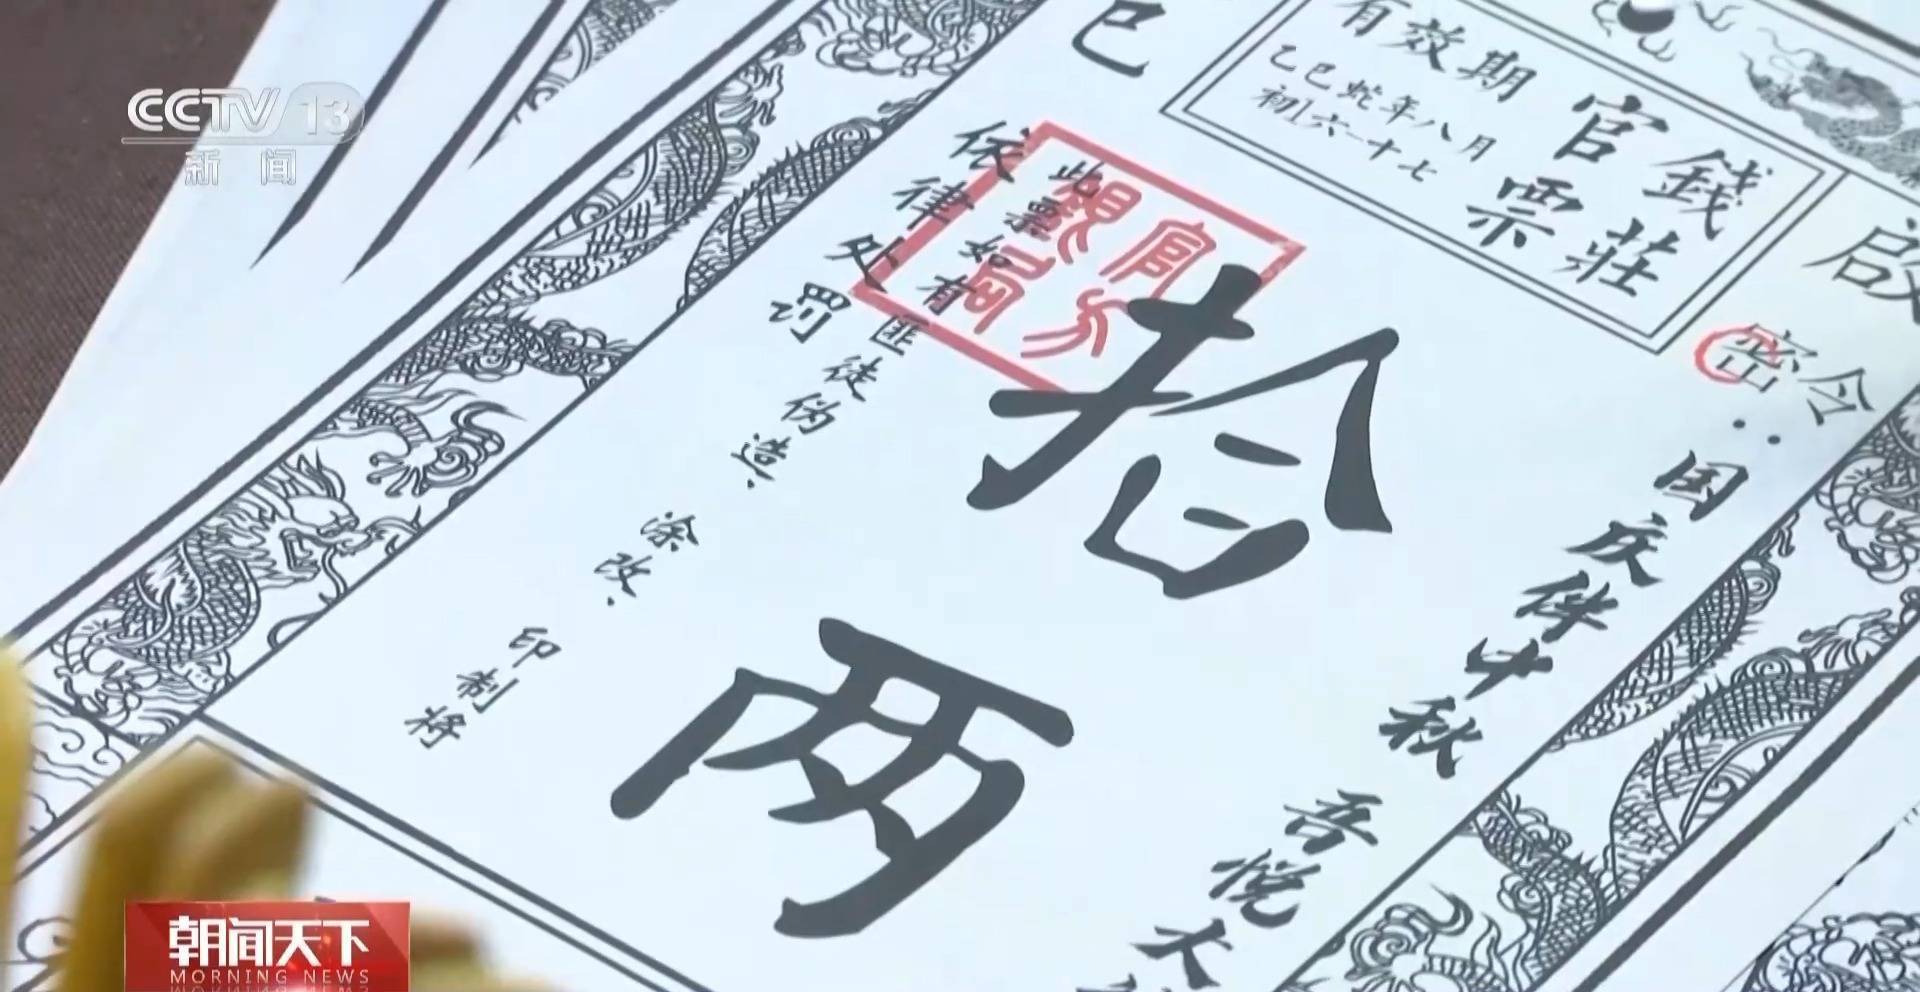 CCTV 13
新闻
巳
有效期
乙巳蛇年八月
初六一十七
官钱
票莊
啟
密令:国庆伴中秋
吾悦大
拾两
此票如有匪徒伪造、涂改、印制将
依律处罚
朝闻天下
MORNING NEWS